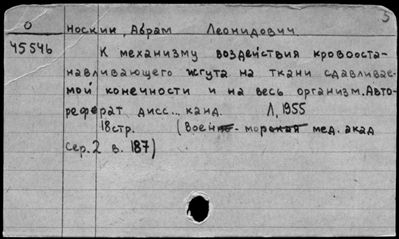 5
О Носкин, Абрам Леонидович.
45546 К механизму воздействия кровооста-
навливающего жгута на ткани сдавливае-
мой конечности и на весь организм. Авто-
реферат дисс... канд. Л, 1955
18стр. (военно-морская мед. акад
Сер. 2 в. 187)